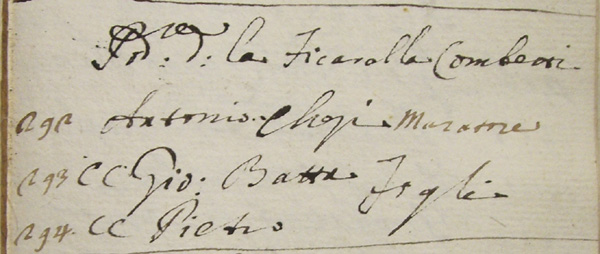 d: la Ficarolla
292 Antonio Ghezi Muratore
293 CC Gio: Batta Figli
294 CC Pietro